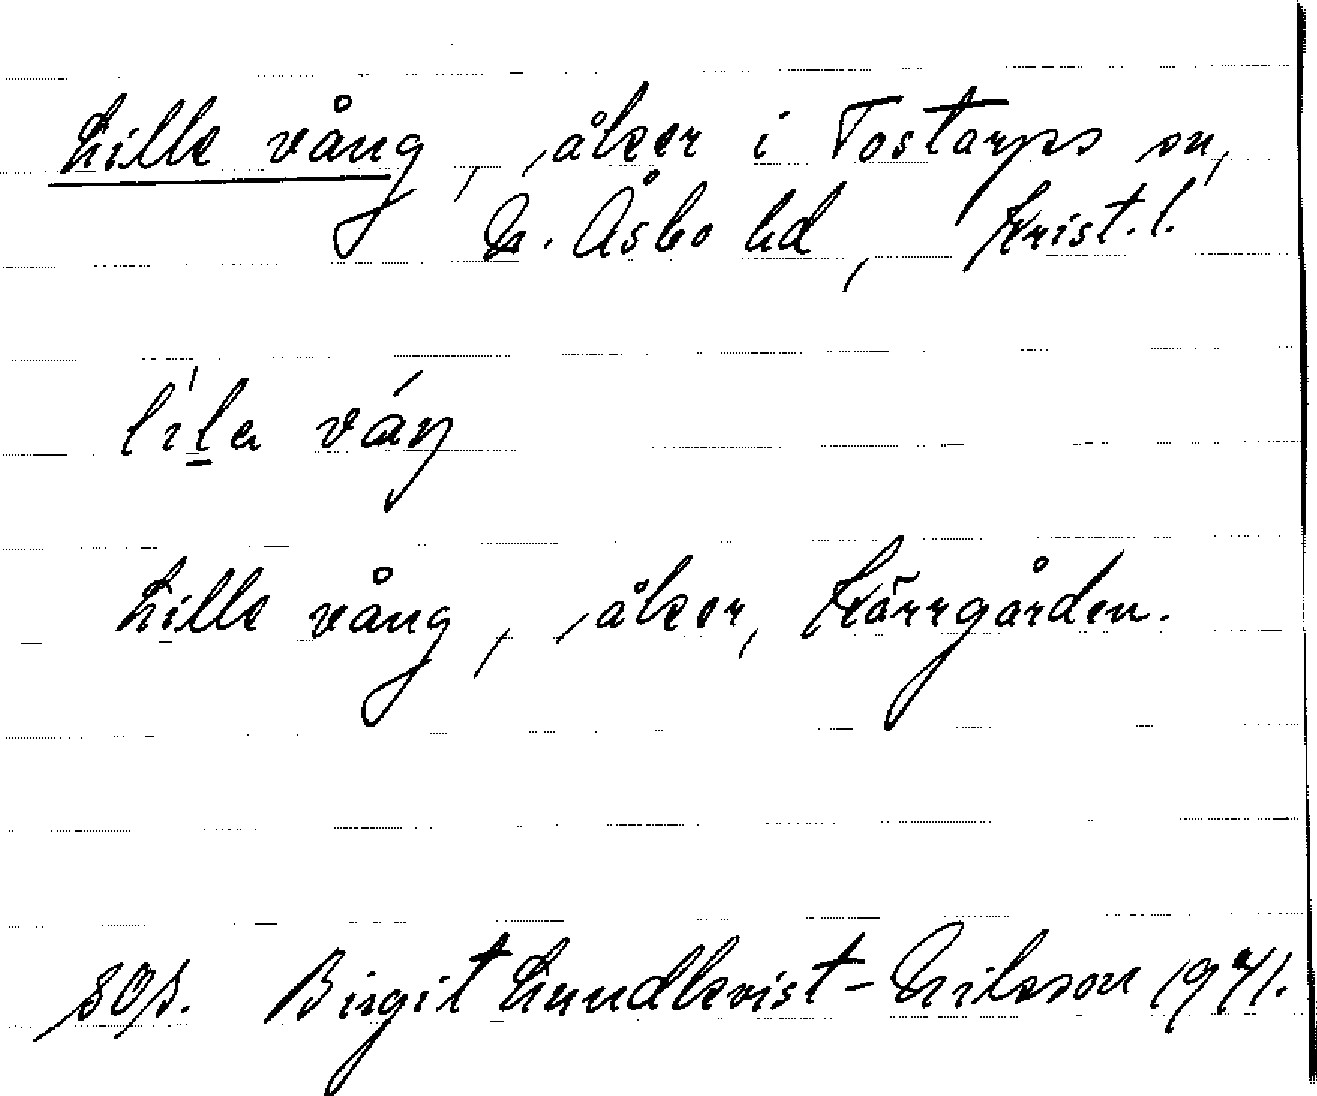 Lille vång, åker i Tostarps sn,
N. Åsbo hd, Krist. l.
lı́la váŋ
Lille vång, åker, Kärrgården.
sos. Birgit Lundkvist-Nilsson 1941.